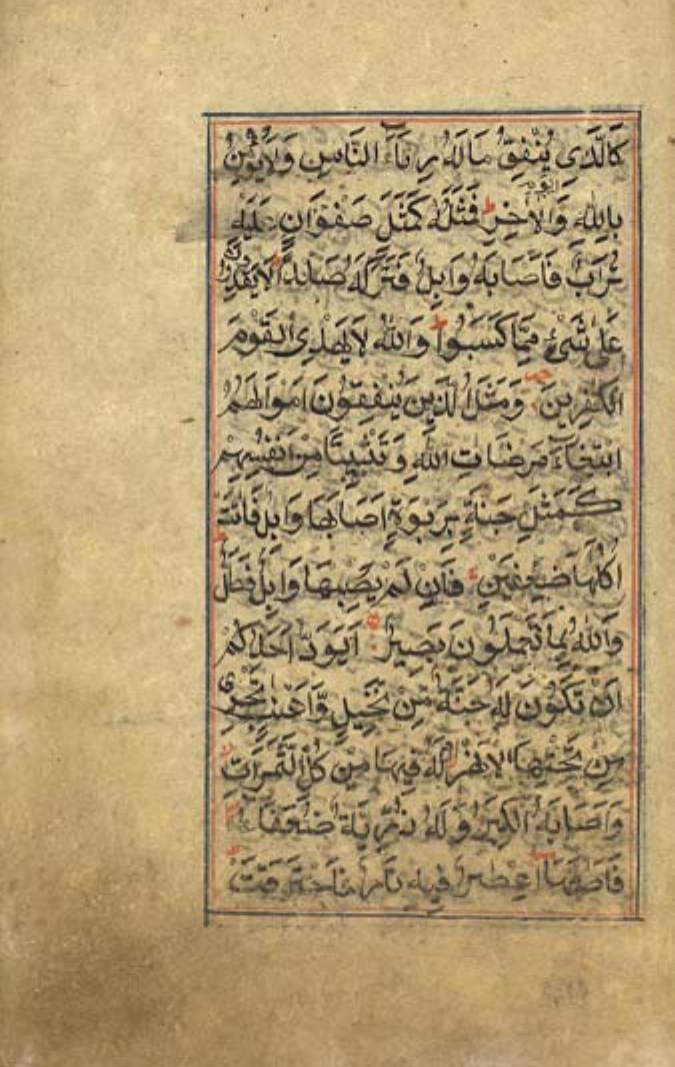 كَالَّذِى يُنْفِقُ مَالَهُ رِئَاءَ النَّاسِ وَلَا يُؤْمِنُ
بِاللهِ وَالْيَوْمِ الْاٰخِرِ ط فَمَثَلُهُ كَمَثَلِ صَفْوَانٍ عَلَيْهِ
تُرَابٌ فَاَصَابَهُ وَابِلٌ فَتَرَكَهُ صَلْدًا ط لَا يَقْدِرُوْنَ
عَلٰى شَىْءٍ مِمَّا كَسَبُوْا ط وَاللهُ لَا يَهْدِى الْقَوْمَ
الْكٰفِرِيْنَ وَمَثَلُ الَّذِيْنَ يُنْفِقُوْنَ اَمْوَالَهُمُ
ابْتِغَاءَ مَرْضَاتِ اللهِ وَتَثْبِيْتًا مِنْ اَنْفُسِهِمْ
كَمَثَلِ جَنَّةٍ بِرَبْوَةٍ اَصَابَهَا وَابِلٌ فَاٰتَتْ
اُكُلَهَا ضِعْفَيْنِ فَاِنْ لَمْ يُصِبْهَا وَابِلٌ فَطَلٌّ ط
وَاللهُ بِمَا تَعْمَلُوْنَ بَصِيْرٌ اَيَوَدُّ اَحَدُكُمْ
اَنْ تَكُوْنَ لَهُ جَنَّةٌ مِنْ نَخِيْلٍ وَّاَعْنَابٍ تَجْرِى
مِنْ تَحْتِهَا الْاَنْهٰرُ لَهُ فِيْهَا مِنْ كُلِّ الثَّمَرَاتِ
وَاَصَابَهُ الْكِبَرُ وَلَهُ ذُرِّيَّةٌ ضُعَفَاءُ
فَاَصَابَهَا اِعْصَارٌ فِيْهِ نَارٌ فَاحْتَرَقَتْ